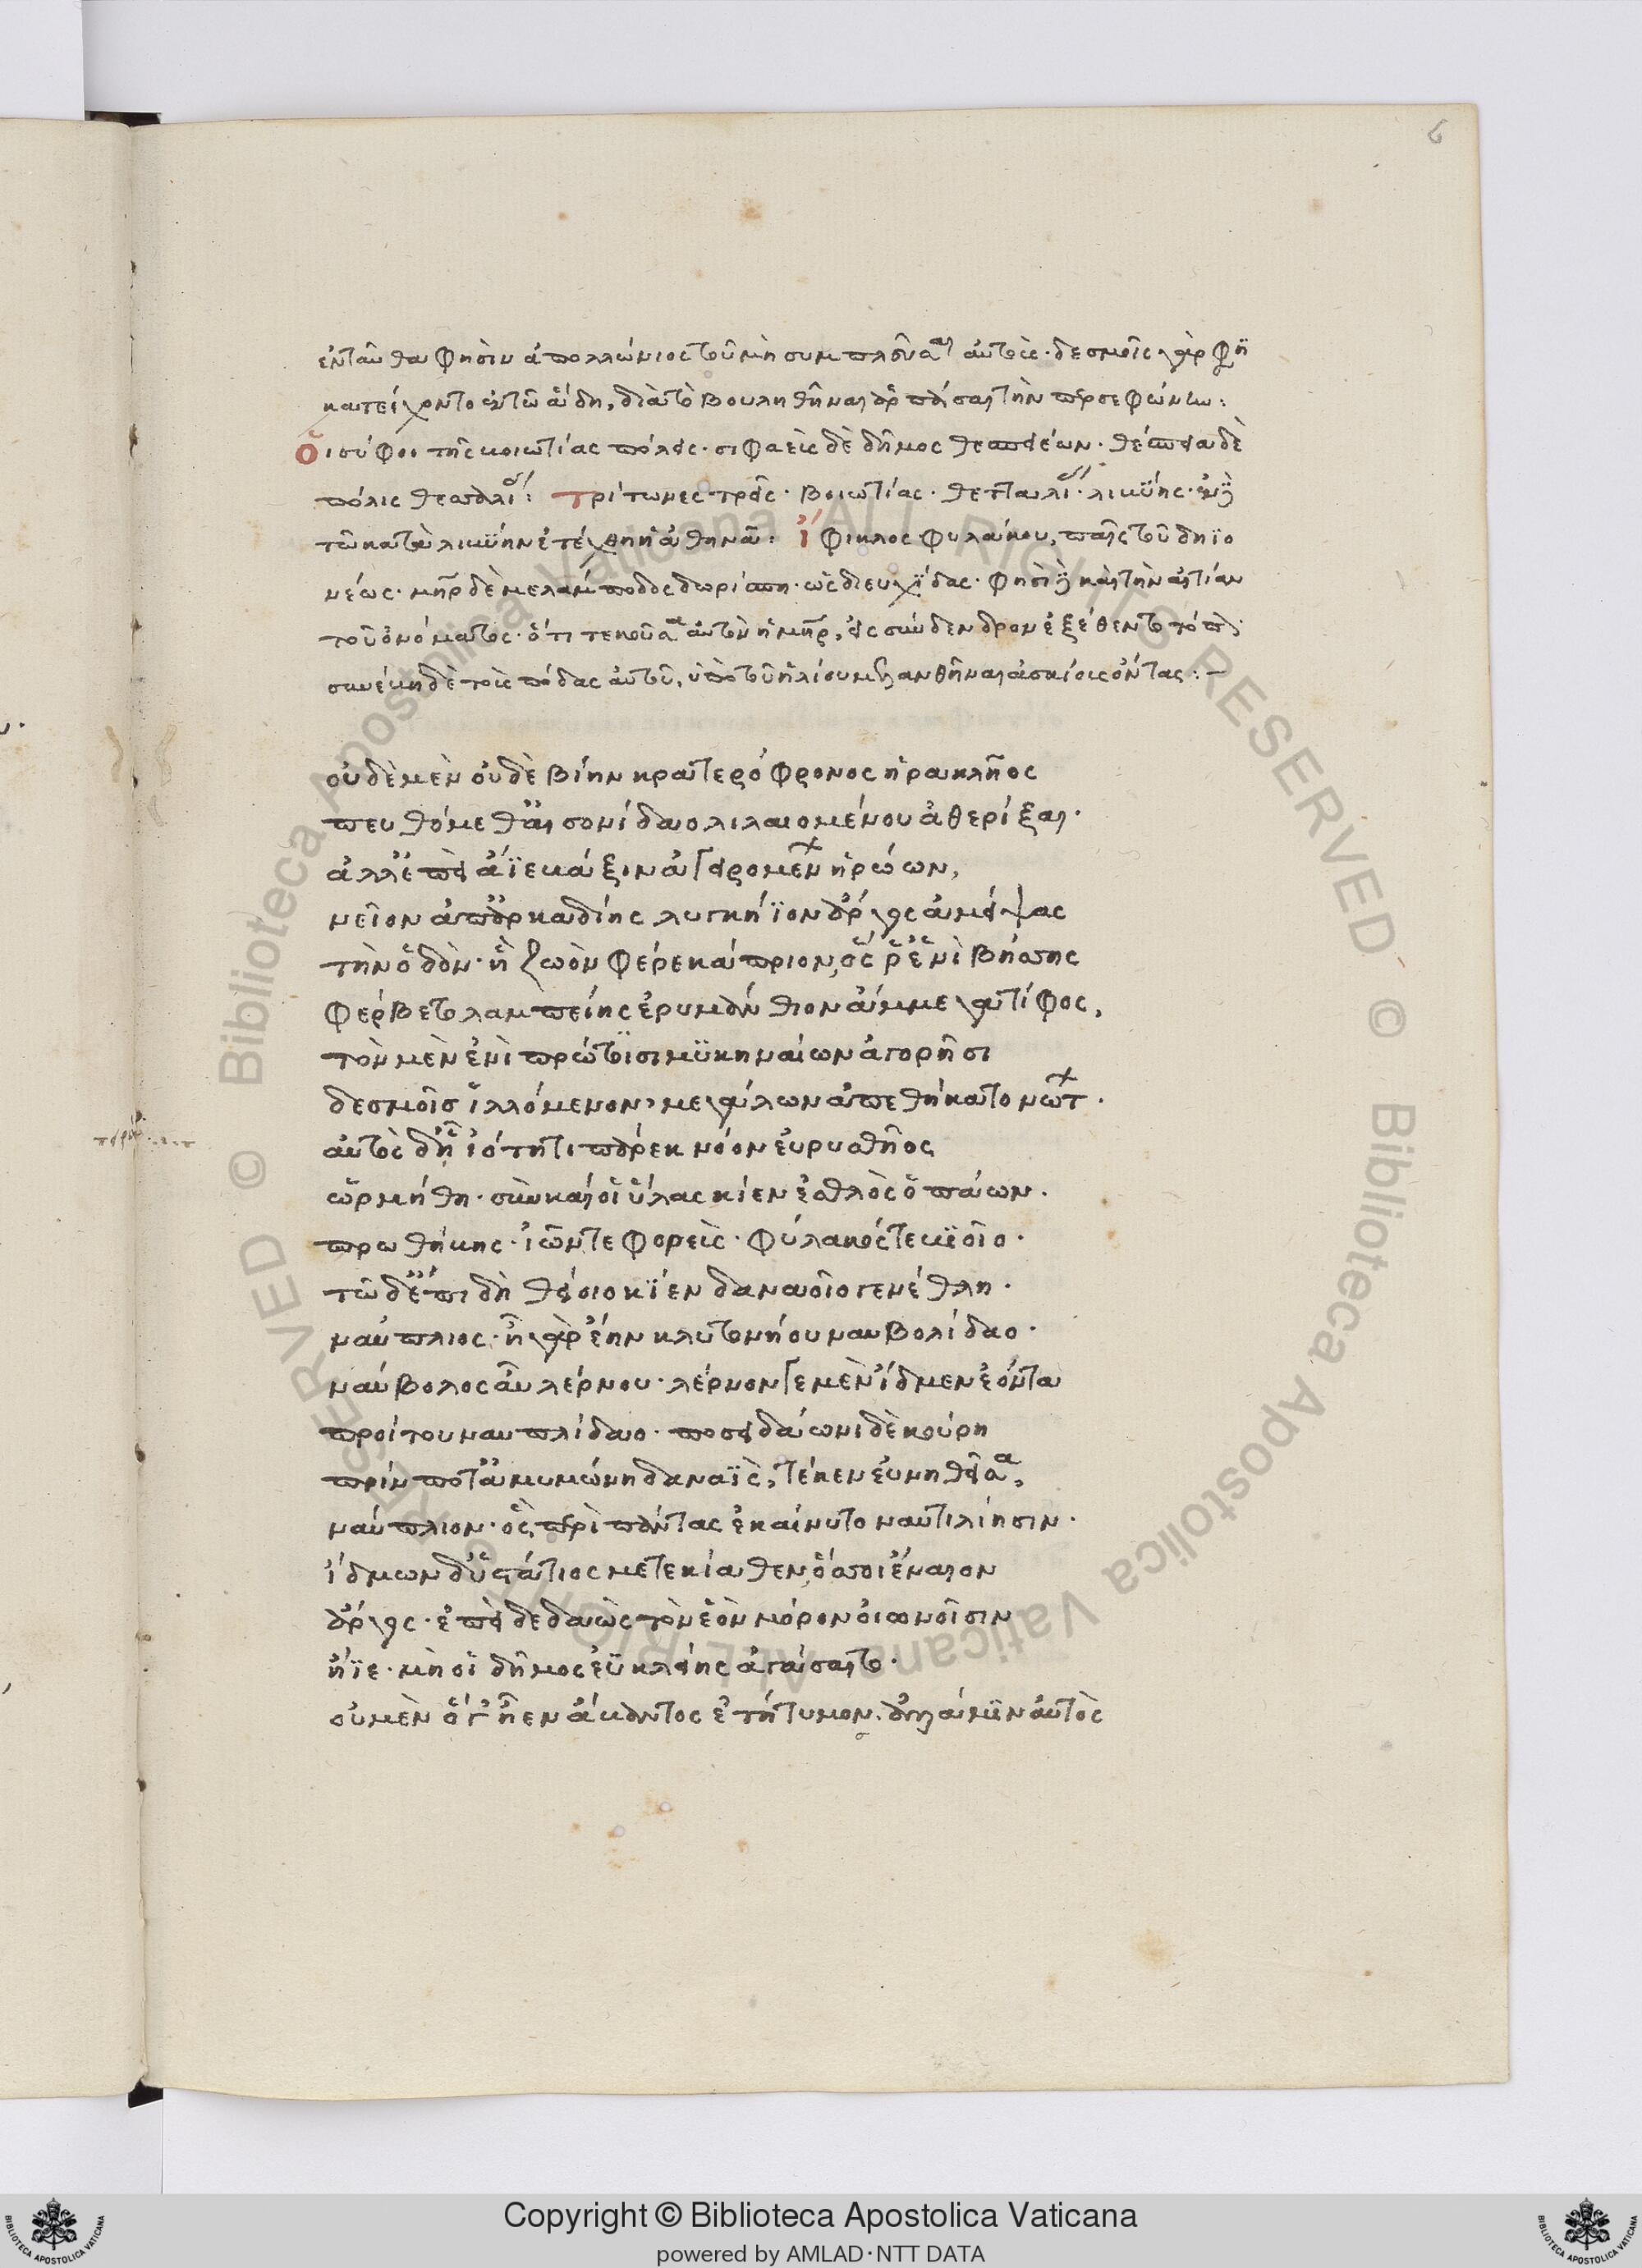 6
ἐνταῦθα φησὶν ἀπολλώνιος τοῦ μὴ συμπλεῦσαι αὐτοὺς· δεσμοῖς γὰρ φη
κατείχοντο ἐν τῶ ἅδη, διὰ τὸ βουληθῆναι ἁρπάσαι τὴν περσεφώνην:
Οἱ σύφοι τῆς κοιωτίας πόλεις· σιφαεὶς δὲ δῆμος θεσπιέων· θέσπεια δὲ
πόλις θεσπαλί: Τρίτωνες τρεῖς· βοιωτίας· θετταλί· λιβύης· ἐν δὲ
τῶ κατὰ λιβύην ἐτέχθη ἡ ἀθηνᾶ: Ἴφικλος φυλάκου, παῖς τοῦ δηϊο
νέως· μηρ δὲ μελάμποδος δωρίππη· ὡς διευχίδας· φησὶ δὲ καὶ τὴν αἰτίαν
τοῦ ὀνόματος· ὅτι τεκοῦσα αὐτὸν ἡ μηρ, εἰς σύνδενδρον ἐξέθεντο τόπον·
συνέβη δὲ τοὺς πόδας αὐτοῦ, ὑπὸ τοῦ ἡλίου μελανθῆναι ἀσκίοις ὄντας:—
οὐδὲ μὲν οὐδὲ βίην κρατερόφρονος ἡρακλῆος
πευθόμεθ' αἰσονίδαο λιλαιομένου ἀθερίξαι·
ἀλλ' ἐπεὶ ἄϊε βάξιν ἀγειρομένων ἡρώων,
νεῖον ἀπ' ἀρκαδίης λυγκήϊον ἄργος ἀμείψας
τὴν ὁδὸν· ἧ ζωὸν φέρε κάπριον, ὅς ῥ' ἐνὶ βήσσης
φέρβετο λαμπείης ἐρυμάνθιον ἀμμέγα τίφος,
τὸν μὲν ἐνὶ πρώτοισι μυκηναίων ἀγορῆσι
δεσμοῖσ ἰλλόμενον, μεγάλων ἀπεθήκατο νώτων.
αὐτὸς δ' ἧ ἰότητι παρὲκ νόον εὐρυσθῆος
ὡρμήθη· σὺν καί οἱ ὕλας κίεν ἐσθλὸς ὀπάων.
πρωθήβης· ἰῶν τε φορεὺς· φύλακός τε βϊοῖο·
τῶ δ' ἔπι δὴ θείοιο κίεν δαναοῖο γενέθλη·
ναύπλιος· ἦ γὰρ ἔην κλυτονήου ναυβολίδαο·
ναύβολος αὖ λέρνου· λέρνον γε μὲν ἴδμεν ἐόντα
προίτου ναυπλίδαο· ποσειδάωνι δὲ κούρη
πρίν ποτ' ἀμυμώνη δαναϊς, τέκεν εὐνηθεῖσα,
ναύπλιον· ὃς περὶ πάντας ἐκαίνυτο ναυτιλίησιν·
ἴδμων δ' ὑστάτιος μετεκίαθεν, ὅσσοι ἔναιον
ἄργος· ἐπεὶ δεδαὼς τὸν ἑὸν μόρον οἰωνοῖσιν
ἤϊε· μή οἱ δῆμος ἐϋκλείης ἀγάσαιτο·
οὐ μὲν ὅγ' ἦεν ἄβαντος ἐτήτυμον. ἀλλά μιν αὐτὸς
Copyright © Biblioteca Apostolica Vaticana
powered by AMLAD·NTT DATA